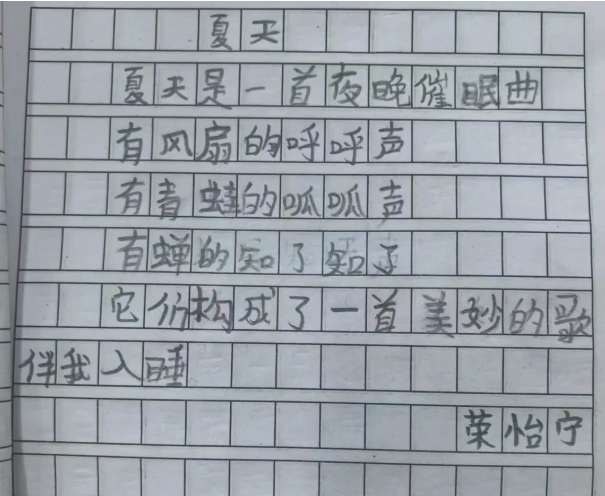 夏天
夏天是一首夜晚催眠曲
有风扇的呼呼声
有青蛙的呱呱声
有蝉的知了知了
它们构成了一首美妙的歌
伴我入睡
荣怡宁